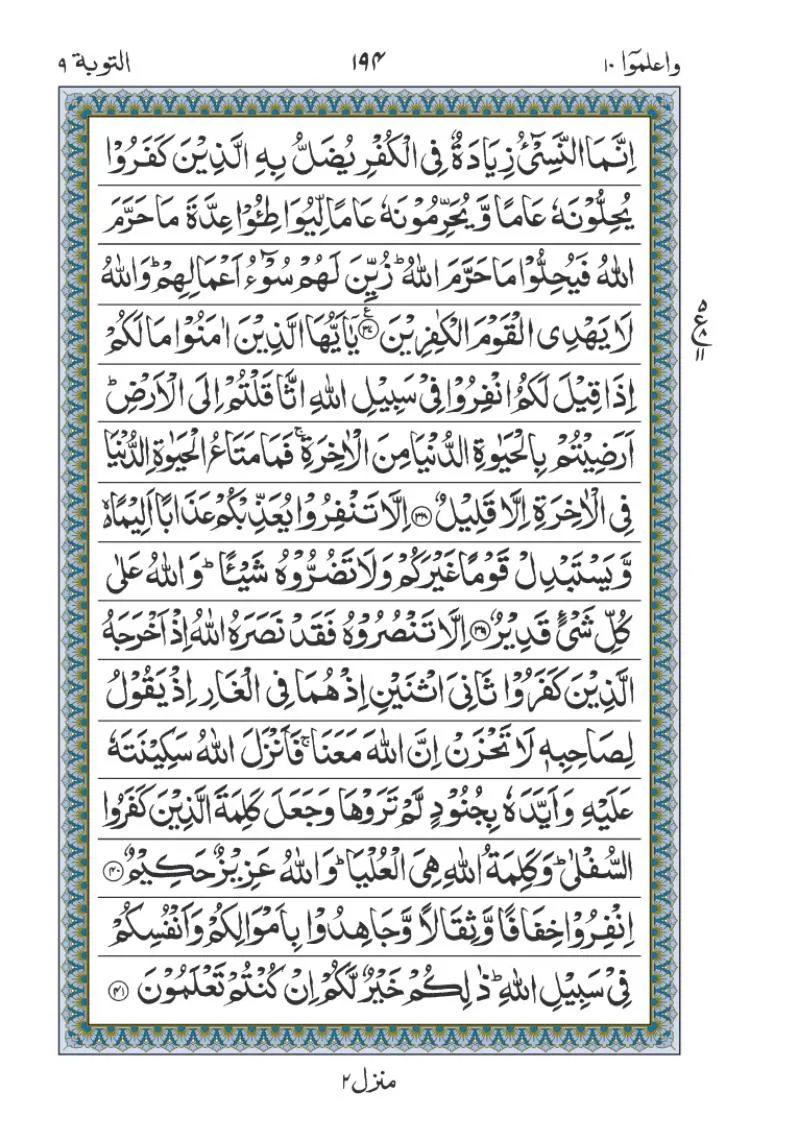 واعلموٓا ١٠ ١٩۴ التوبة ٩
اِنَّمَا النَّسِیْٓءُ زِیَادَةٌ فِی الْكُفْرِ یُضَلُّ بِهِ الَّذِیْنَ كَفَرُوْا
یُحِلُّوْنَهٗ عَامًا وَّیُحَرِّمُوْنَهٗ عَامًا لِّیُوَاطِـُٔوْا عِدَّةَ مَا حَرَّمَ
اللّٰهُ فَیُحِلُّوْا مَا حَرَّمَ اللّٰهُ ؕ زُیِّنَ لَهُمْ سُوْٓءُ اَعْمَالِهِمْ ؕ وَاللّٰهُ
لَا یَهْدِی الْقَوْمَ الْكٰفِرِیْنَ ﴿۳۷﴾ یٰۤاَیُّهَا الَّذِیْنَ اٰمَنُوْا مَا لَكُمْ
ع ۵ ٨ ١١
اِذَا قِیْلَ لَكُمُ انْفِرُوْا فِیْ سَبِیْلِ اللّٰهِ اثَّاقَلْتُمْ اِلَی الْاَرْضِ ؕ
اَرَضِیْتُمْ بِالْحَیٰوةِ الدُّنْیَا مِنَ الْاٰخِرَةِ ۚ فَمَا مَتَاعُ الْحَیٰوةِ الدُّنْیَا
فِی الْاٰخِرَةِ اِلَّا قَلِیْلٌ ﴿۳۸﴾ اِلَّا تَنْفِرُوْا یُعَذِّبْكُمْ عَذَابًا اَلِیْمًا ۙ۬
وَّیَسْتَبْدِلْ قَوْمًا غَیْرَكُمْ وَلَا تَضُرُّوْهُ شَیْـًٔا ؕ وَاللّٰهُ عَلٰی
كُلِّ شَیْءٍ قَدِیْرٌ ﴿۳۹﴾ اِلَّا تَنْصُرُوْهُ فَقَدْ نَصَرَهُ اللّٰهُ اِذْ اَخْرَجَهُ
الَّذِیْنَ كَفَرُوْا ثَانِیَ اثْنَیْنِ اِذْ هُمَا فِی الْغَارِ اِذْ یَقُوْلُ
لِصَاحِبِهٖ لَا تَحْزَنْ اِنَّ اللّٰهَ مَعَنَا ۚ فَاَنْزَلَ اللّٰهُ سَكِیْنَتَهٗ
عَلَیْهِ وَاَیَّدَهٗ بِجُنُوْدٍ لَّمْ تَرَوْهَا وَجَعَلَ كَلِمَةَ الَّذِیْنَ كَفَرُوا
السُّفْلٰی ؕ وَكَلِمَةُ اللّٰهِ هِیَ الْعُلْیَا ؕ وَاللّٰهُ عَزِیْزٌ حَكِیْمٌ ﴿۴۰﴾
اِنْفِرُوْا خِفَافًا وَّثِقَالًا وَّجَاهِدُوْا بِاَمْوَالِكُمْ وَاَنْفُسِكُمْ
فِیْ سَبِیْلِ اللّٰهِ ؕ ذٰلِكُمْ خَیْرٌ لَّكُمْ اِنْ كُنْتُمْ تَعْلَمُوْنَ ﴿۴۱﴾
منزل ٢